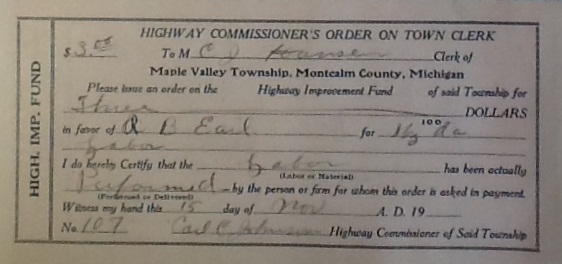 HIGHWAY COMMISSIONER'S ORDER ON TOWN CLERK
HIGH. IMP. FUND
$3.00 To M C J Hansen Clerk of
Maple Valley Township, Montcalm County, Michigan
Please issue an order on the Highway Improvement Fund of said Township for
Three DOLLARS
100
in favor of R B Earl for da
Labor
I do hereby Certify that the Labor has been actually
(Labor or Material)
Performed by the person or firm for whom this order is asked in payment.
(Performed or Delivered)
Witness my hand this 15 day of Nov A. D. 19
No. 107 Carl C Johnson Highway Commissioner of Said Township